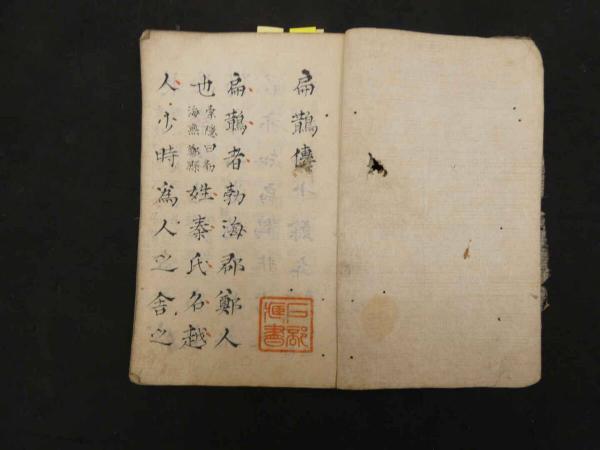 扁鵲傳
扁鵲者勃海郡鄭人
也索隱曰勃海無鄭縣姓秦氏名越
人少時爲人之舍之